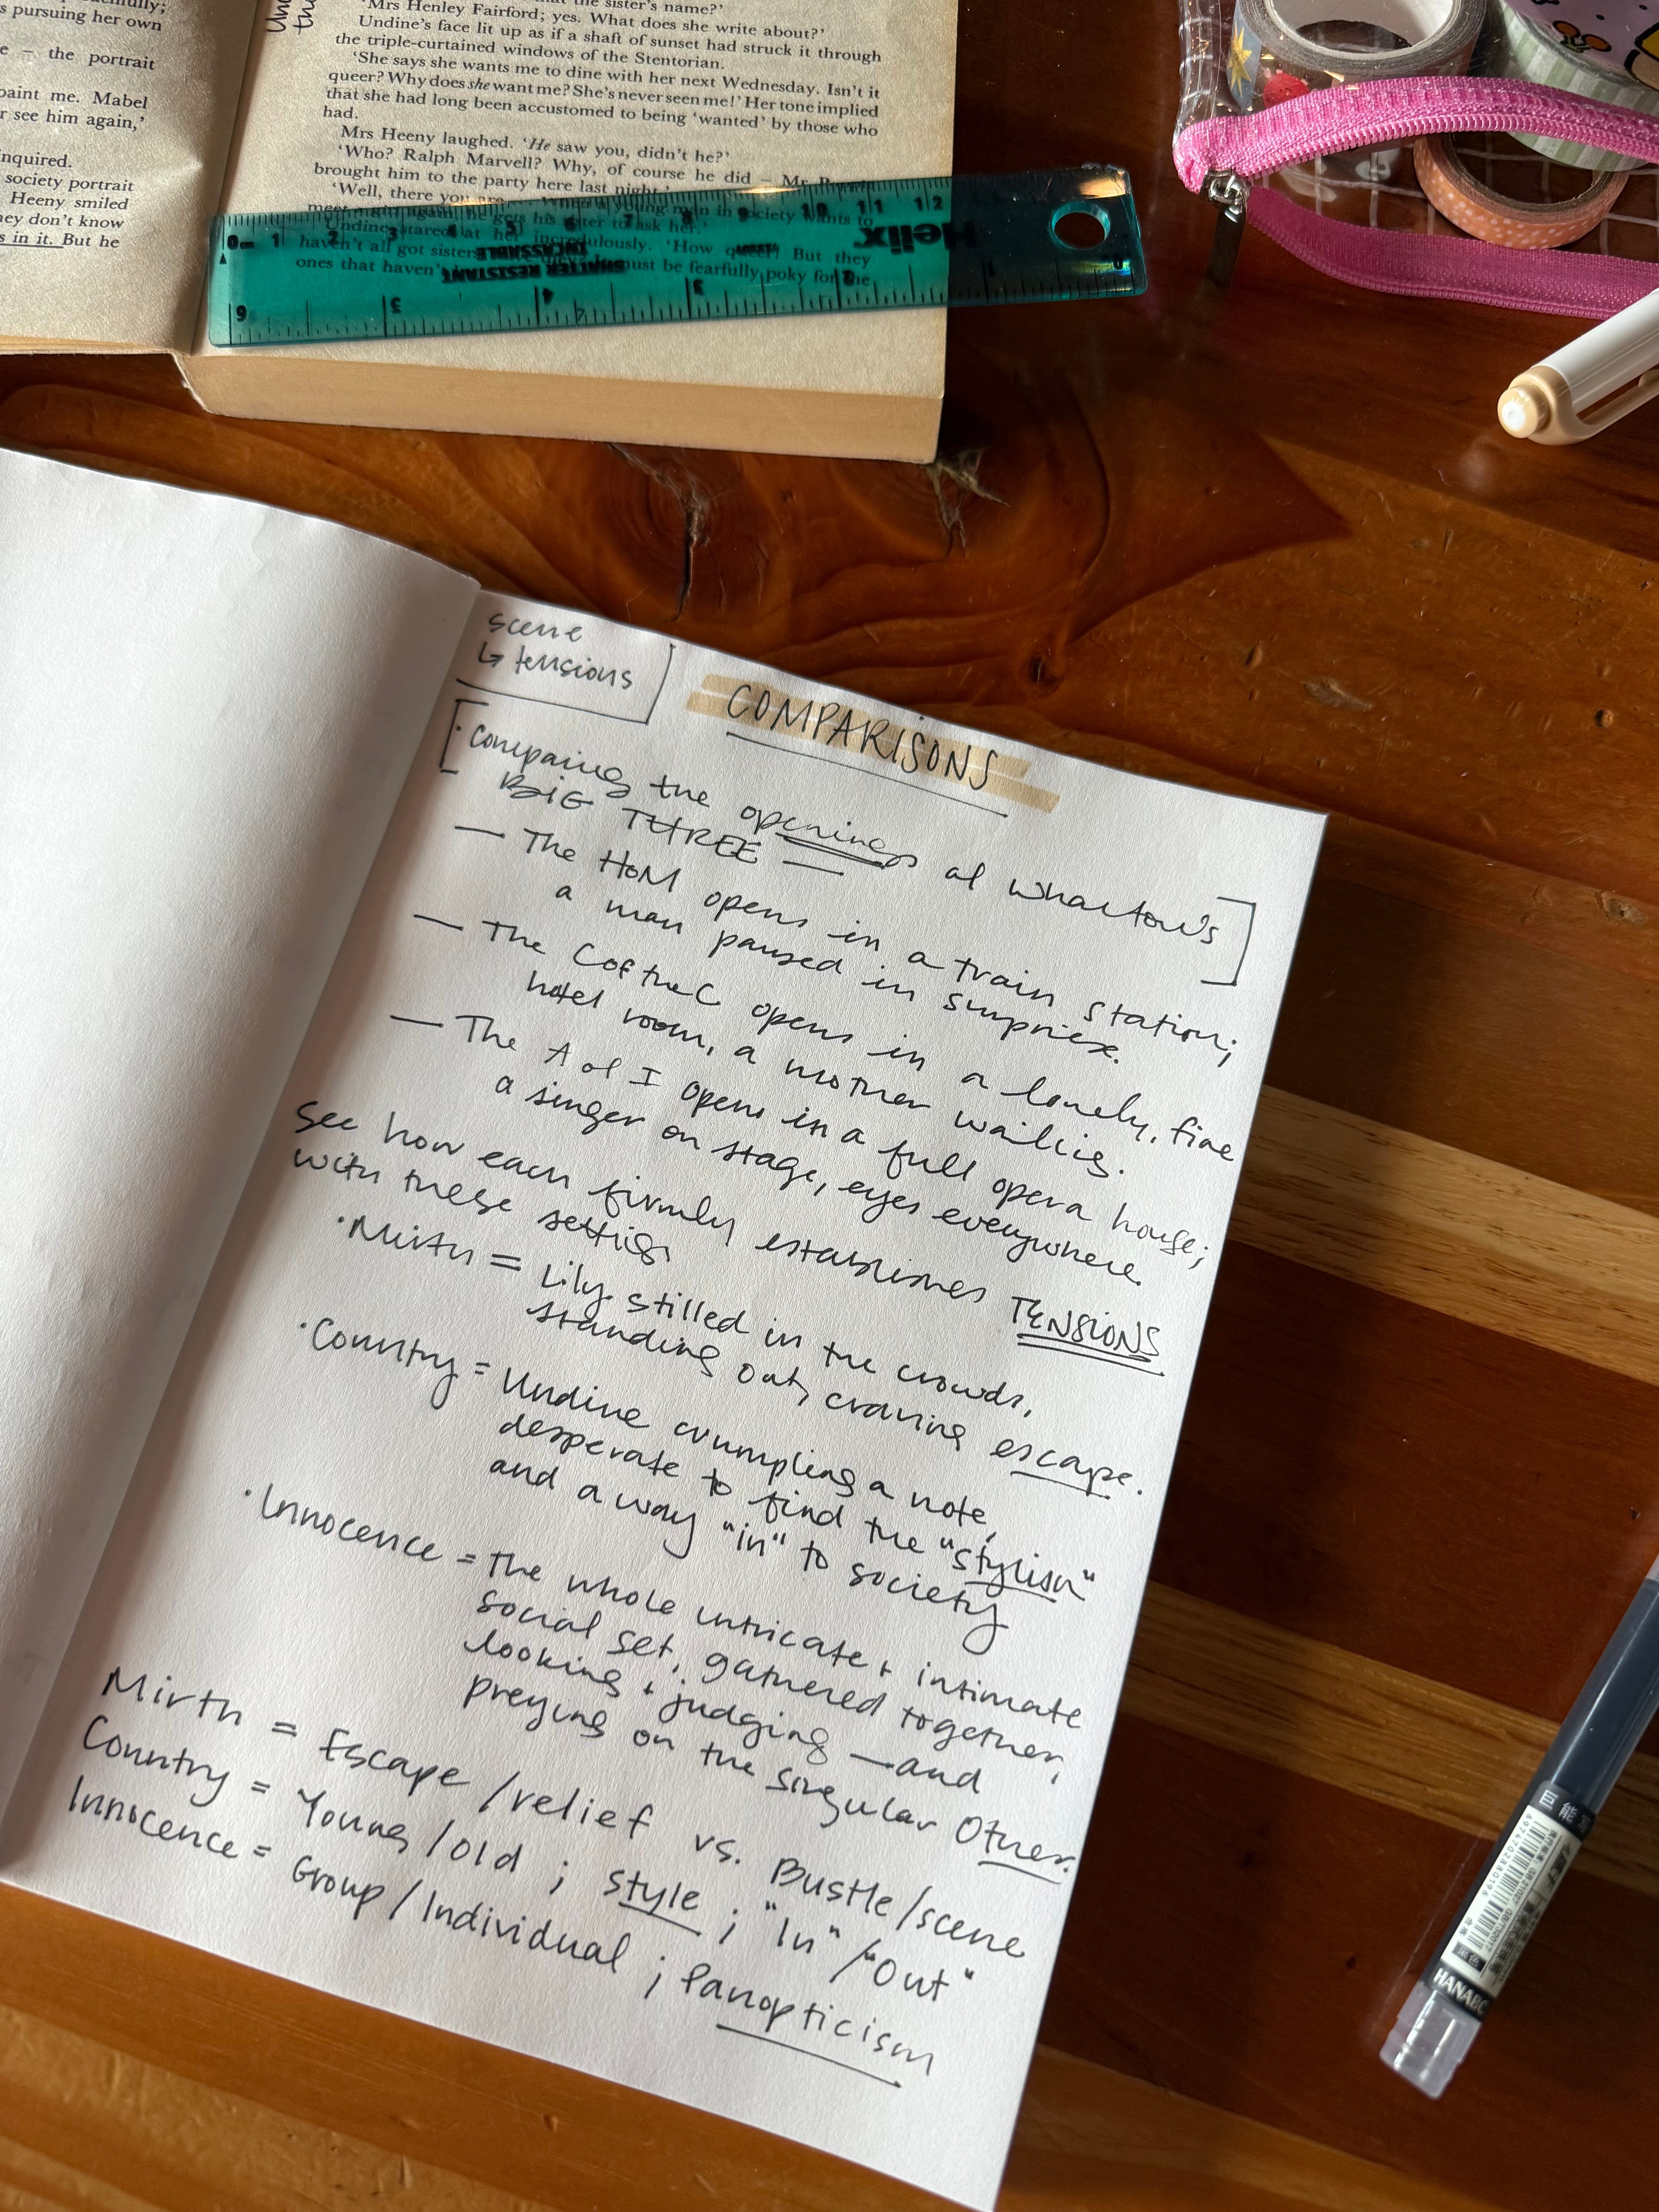 s pursuing her own
e – the portrait
paint me. Mabel
r see him again,’
nquired.
society portrait
Heeny smiled
hey don’t know
s in it. But he
the sister’s name?’
‘Mrs Henley Fairford; yes. What does she write about?’
Undine’s face lit up as if a shaft of sunset had struck it through
the triple-curtained windows of the Stentorian.
‘She says she wants me to dine with her next Wednesday. Isn’t it
queer? Why does she want me? She’s never seen me!’ Her tone implied
that she had long been accustomed to being ‘wanted’ by those who
had.
Mrs Heeny laughed. ‘He saw you, didn’t he?’
‘Who? Ralph Marvell? Why, of course he did – Mr
brought him to the party here last night.’
‘Well, there you are. When a young man in society wants to
meet again, he gets his sister to ask her.’
Undine stared at her incredulously. ‘How queer! But they
haven’t all got sisters must be fearfully poky for the
ones that haven’
Helix
SHATTER RESISTANT
INCASSABLE
scene
↳ tensions
COMPARISONS
[· Comparing the openings of Wharton's
BIG THREE — ]
— The HoM opens in a train station;
a man paused in surprise.
— The CoftheC opens in a lonely, fine
hotel room, a mother waiting.
— The A of I opens in a full opera house;
a singer on stage, eyes everywhere.
See how each firmly establishes TENSIONS
with these settings
· Mirth = Lily stilled in the crowds,
standing out, craving escape.
· Country = Undine crumpling a note,
desperate to find the "stylish"
and a way "in" to society
· Innocence = the whole intricate + intimate
social set, gathered together,
looking + judging — and
preying on the singular Other.
Mirth = Escape / relief vs. Bustle / scene
Country = Young / old ; style ; "In" / "Out"
Innocence = Group / Individual ; Panopticism
HANABC